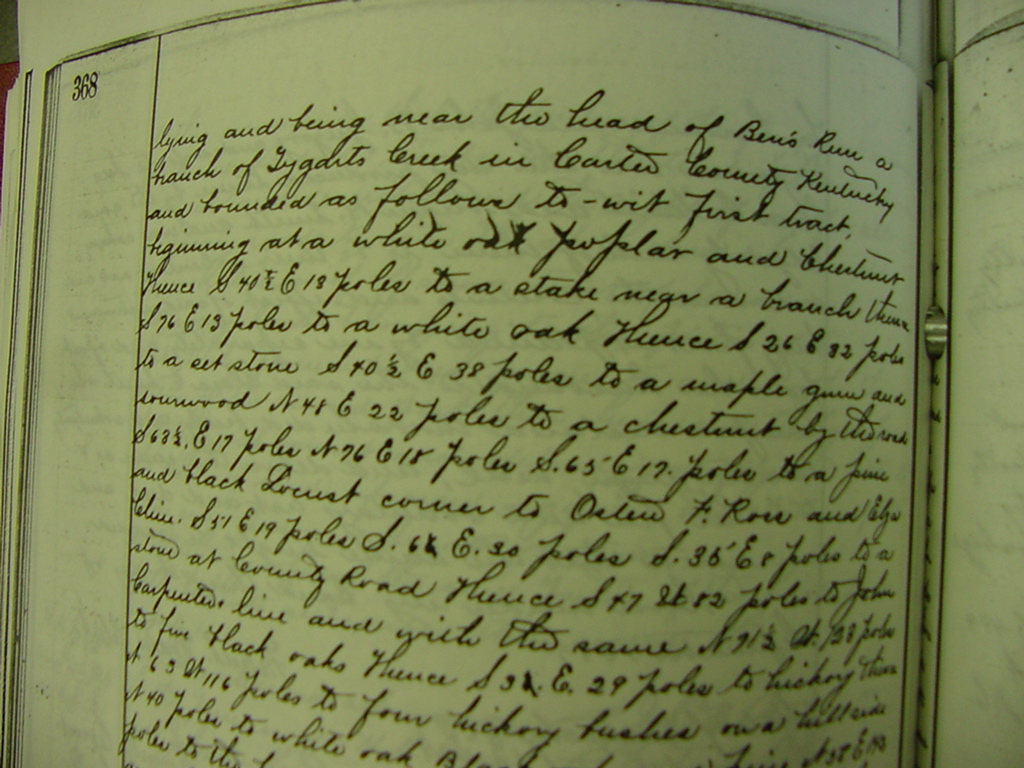 368
lying and being near the head of Ben's Run a
branch of Tygarts Creek in Carter County Kentucky
and bounded as follows to-wit first tract,
beginning at a white oak poplar and Chestnut
thence S 40½ E 18 poles to a stake near a branch thence
S 76 E 13 poles to a white oak thence S 26 E 32 poles
to a set stone S 40½ E 38 poles to a maple gum and
sourwood N 48 E 22 poles to a chestnut by the road
S 63½ E 17 poles N 76 E 18 poles S. 65 E 17. poles to a pine
and black Locust corner to F. Ross and
Cline. S 51 E 19 poles S. E. 30 poles S. 35 E 8 poles to a
stone at County Road thence S 47 W 82 poles to John
Carpenters line and with the same N 71½ W. 138 poles
to five black oaks thence S E. 29 poles to hickory thence
63 W 116 poles to four hickory bushes on a hill side
N 40 poles to white oak
poles to the